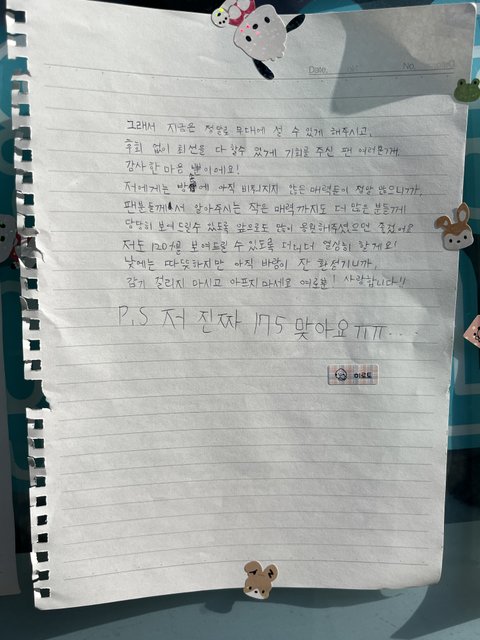 Date. No.
그래서 지금은 정말로 무대에 설 수 있게 해주시고,
후회 없이 최선을 다 할수 있게 기회를 주신 팬 여러분께,
감사한 마음 뿐이에요!
저에게는 방송에 아직 비춰지지 않은 매력들이 정말 많으니까,
팬분들께서 알아주시는 작은 매력까지도 더 많은 분들께
당당히 보여 드릴수 있도록 앞으로도 많이 응원해주셨으면 좋겠어요
저도 120%를 보여드릴 수 있도록 더더더 열심히 할게요!
낮에는 따뜻하지만 아직 바람이 잔 환절기니까,
감기 걸리지 마시고 아프지마세요 여러분! 사랑합니다!!
P.S 저 진짜 175 맞아요 ㅠㅠ...